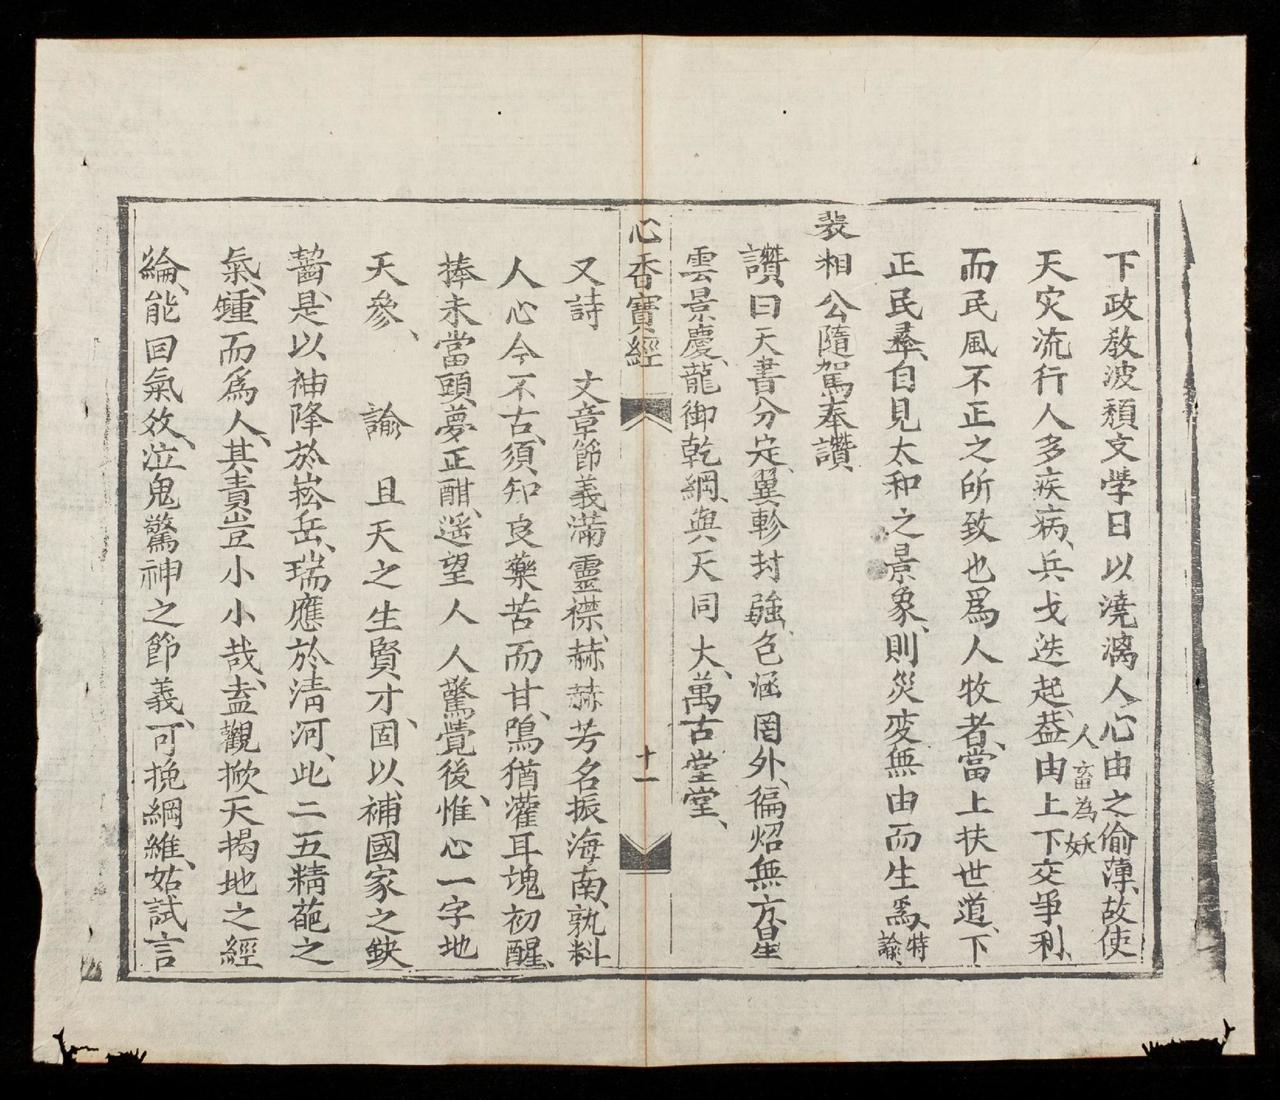 下政敎波頹文學日以澆漓人心由之偷薄、故使
人畜為妖
天灾流行人多疾病、兵戈迭起、葢由上下交爭利、
而民風不正之所致也爲人牧者、當上扶世道、下
正民彝、自見太和之景象、則災变無由而生焉、特諭、
裴相公隨駕奉讚
讚曰天書分定、翼軫封疆、色涵罔外、徧炤無方、星
雲景慶、龍御乾綱、與天同大、萬古堂堂、
心香寶經
十一
又詩　文章節義滿靈襟、赫赫芳名振海南、孰料
人心今不古、須知良藥苦而甘、鴞猶灌耳塊初醒、
捧未當頭、夢正酣、遥望人人驚覺後、惟心一字地
天參、　諭　且天之生賢才、固以補國家之缺
齾、是以神降於崧岳、瑞應於清河、此二五精葩之
氣、鍾而爲人、其責豈小小哉、盍觀掀天揭地之經
綸、能回氣效、泣鬼驚神之節義、可挽綱維、姑試言